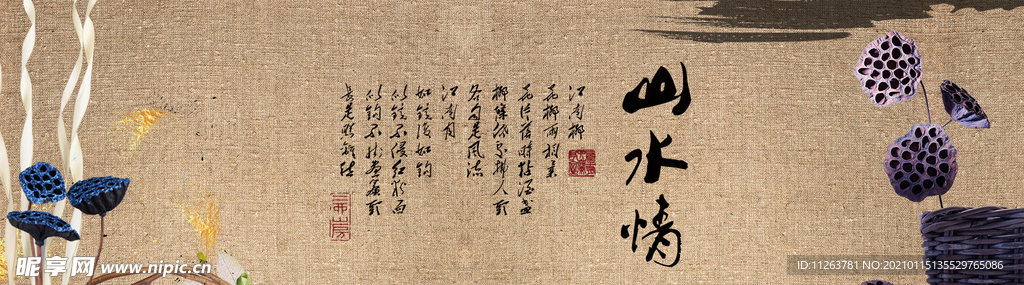 山水情
江南柳
花柳两相柔
花片落时粘酒盏
柳条低处拂人头
各自是风流
江南月
如镜复如钩
似镜不侵红粉面
似钩不挂画帘头
长是照离愁
昵享网 www.nipic.cn
ID:11263781 NO:20210115135529765086